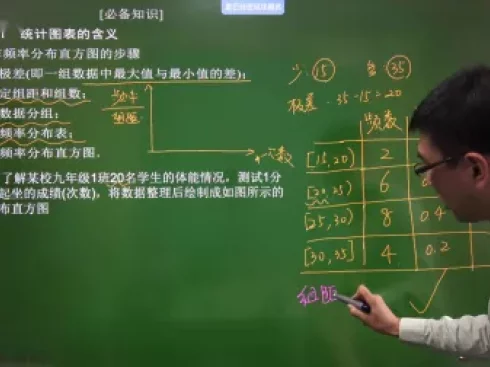 [必备知识]
1 统计图表的含义
作频率分布直方图的步骤
极差(即一组数据中最大值与最小值的差);
定组距和组数;
数据分组;
频率分布表;
频率分布直方图.
频率
组距
次数
了解某校九年级1班20名学生的体能情况，测试1分
起坐的成绩(次数)，将数据整理后绘制成如图所示的
布直方图
少: 15
多: 35
极差: 35-15=20
频数
[15,20) 2
[20,25) 6
[25,30) 8 0.4
[30,35] 4 0.2
组距